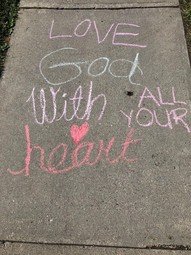 LOVE
God
With ALL
YOUR
heart